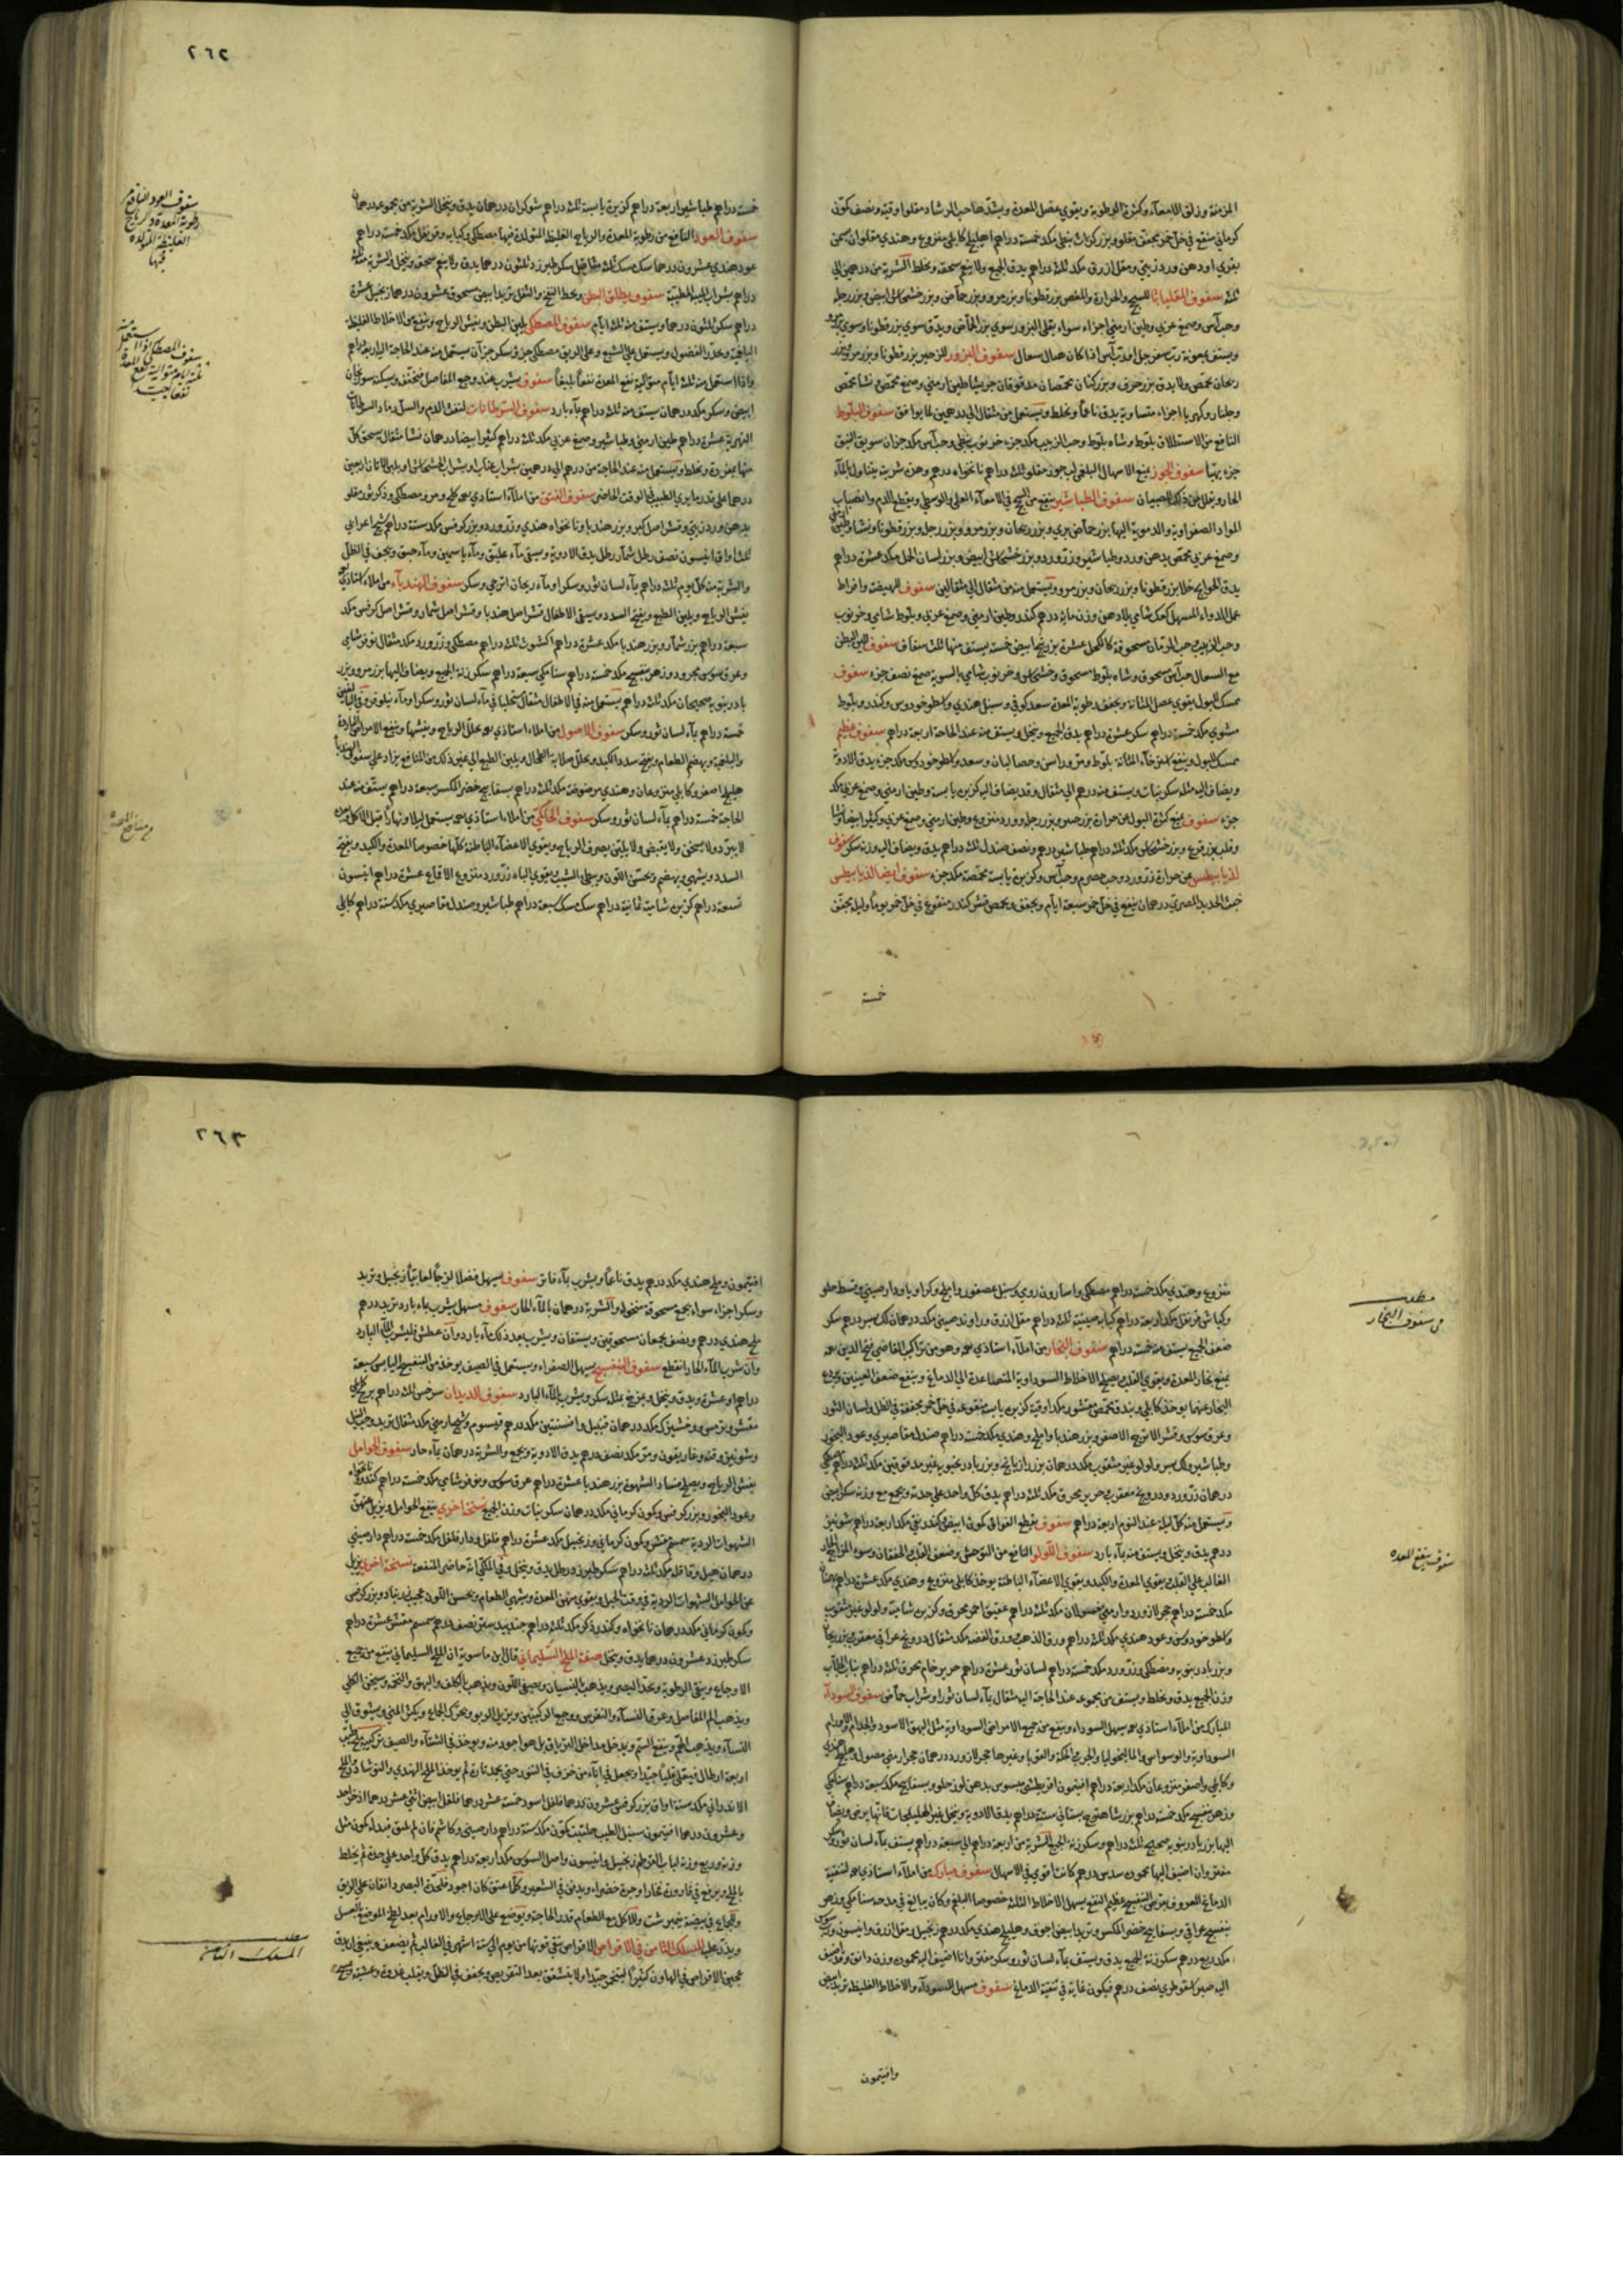 المزمنة وزلق الامعاء وكثرة الرطوبة ويقوي عضل المعدة ويشدها حب الرشاد مقلوا وقية ونصف كمون
كرماني منقع في خل خمر مجفف مقلو وبزر كراث نبطي مكد خمسة دراهم اهليلج كابلي منزوع وهندي مقلوان بسمن
بقري او دهن ورد زيتي ومقل ازرق مكد ثلثة دراهم يدق الجميع ولا ينعم سحقه ويخلط الشربة من درهمين الى
ثلثة سفوف المقلياثا للسحج والحرارة والمغص بزر قطونا وبزر مرو وبزر حماض وبزر خشخاش ابيض وبزر رجلة
وحب آس وصمغ عربي وطين ارمني اجزاء سواء يقلى البزور سوى بزر الحماض ويدق سوى بزر قطونا وسوى
ويستف بمعونة رب سفرجل او رب آس اذا كان هناك سعال سفوف البزور للزحير بزر قطونا وبزر مرو وبزر
ريحان محمص ولا يدق بزر خرف وبزر كتان محمصان مدقوقان جريشا طين ارمني وصمغ محمص نشا محمص
وجلنار وكهربا اجزاء متساوية يدق ناعما ويخلط ويستعمل من مثقال الى درهمين لما يوافق سفوف البلوط
النافع من الاستطلاق بلوط وشاه بلوط وحب الزبيب مكد جزء خرنوب نبطي وحب آس مكد جزان سويق النبق
جزء يهيا سفوف الجوز يمنع الاسهال البلغمي لب جوز مقلو ثلثة دراهم نانخواه درهم وهن شربة يتناول بالماء
الحار ويقلل من ذلك للصبيان سفوف الطباشير ينفع من السحج في الامعاء العليا والوسطى ويقطع الدم وانصباب
المواد الصفراوية والدموية اليها بزر حماض بري وبزر ريحان وبزر مرو وبزر رجل وبزر قطونا ونشا وطين
وصمغ عربي محمص بدهن ورد وطباشير وزرورد وبزر خشخاش ابيض وبزر لسان الحمل مكد عشرة دراهم
يدق الحوايج خلا بزر قطونا وبزر ريحان وبزر مرو ويستعمل منه من مثقال الى مثقالين سفوف الهيضة وافراط
عمل الدواء المسهل كعك شامي بلا دهن وزن ماية درهم كندر وطين ارمني وصمغ عربي وبلوط شامي وخرنوب
وحب الزبيب وحب الرمان مسحوقة كالكحل عشرة بزر بنج ابيض خمسة يستف منها ثلث سفاف سفوف لين البطن
مع السعال حب آس مسحوق وشاه بلوط مسحوق وخشخاش وخرنوب شامي بالسوية صمغ نصف جزء سفوف
ممسك للبول يقوي عضل المثانة ويجفف رطوبة المعدة سعد كوفي وسنبل هندي واسطوخودوس وكندر وبلوط
مشوي مكد خمسة دراهم سكر عشرة دراهم يدق الجميع وينخل ويستف منه عند الحاجة اربعة دراهم سفوف عظيم
ممسك للبول وينفع لاسترخاء المثانة بلوط ومر وراسن وحصالبان وسعد واسطوخودس مكد جزء يدق الادوية
ويضاف اليه مثله سكر نبات ويستف منه درهم الى مثقال وقد يضاف اليه كزبرة يابسة وطين ارمني وصمغ عربي مكد
جزء سفوف يمنع كثرة البول عن حرارة بزر خس وبزر رجل وورد منزوع وطين ارمني وصمغ عربي وكثيرا بيضا ونشا
وقلب بزر قرع وبزر خشخاش مكد ثلثة دراهم طباشير درهم ونصف صندل ثلثة دراهم يدق ويضاف اليه وزنه سكر سفوف
لذيابيطس عن حرارة زرورد وحب حصرم وحب آس وكزبرة يابسة محمصة مكد جزء سفوف ايضا لذيابيطس
خبث الحديد البصري درهمان ينقع في خل خمر سبعة ايام ويجفف ويحمص قشر كندر منقوع في خل خمر يوما وليلة يجفف
خمسة
٢٦٢
سفوف العود النافع من
رطوبة المعدة والرياح
الغليظة المتولدة
فيها
سفوف المصطكى اذا استعمل منه
ثلثة ايام متوالية نفع المعدة
نفعا بليغا
خمسة دراهم طباشير اربعة دراهم كزبرة يابسة ثلثة دراهم شوكران درهمان يدق وينخل الشربة من مجموعه درهمان
سفوف العود النافع من رطوبة المعدة والرياح الغليظة المتولدة فيها مصطكى وكبابه وقرنفل مكد خمسة دراهم
عود هندي عشرون درهما سك مسك ثلثة مثاقيل سكر طبرزد ثلثون درهما يدق ولا ينعم سحقه وينخل والشربة منه ثلثة
دراهم بشراب الميبة المطيبة سفوف يطلق البطن ويحط النفخ والثقل تربد ابيض مسحوق عشرون درهما زنجبيل عشرة
دراهم سكر ثلثون درهما ويستف منه ثلثة ايام سفوف المصطكى يلين البطن ويفش الرياح وينفع من الاخلاط الغليظة
البلغمية ويحدر الفضول ويستعمل على الشبع وعلى الريق مصطكى جزو وسكر جزآن يستعمل منه عند الحاجة اليه اربعة دراهم
واذا استعمل منه ثلثة ايام متوالية نفع المعدة نفعا بليغا سفوف يشرب عند وجع المفاصل فيخفف ويسكنه سورنجان
ابيض وسكر مكد درهمان يستف منه ثلثة دراهم بماء بارد سفوف السرطانات لنفث الدم والسل رماد السرطانات
النهرية عشرة دراهم طين ارمني وطباشير وصمغ عربي مكد ثلثة دراهم كثيرا بيضا درهمان نشا مثقال يسحق كل
منها بمفرده وتخلط ويستعمل منه عند الحاجة من درهم الى درهمين بشراب عناب او بشراب الخشخاش او بلبن الاتان اربعين
درهما على قدر ما يرى الطبيب في الوقت الحاضر سفوف الفتق من املاء استاذي
ثلث اواق انيسون نصف رطل شمار رطل يدق الادوية ويسقى ماء عليق وماء ياسمين وماء حبق ويجفف في الظل
والشربة منه كل يوم ثلثة دراهم بماء لسان ثور وسكر او ماء ريحان اترجي وسكر سفوف الهندباء من املاء استاذي
يفش الرياح ويلين الطبع ويفتح السدد ويسقى الاطفال قشر اصل هندبا وقشر اصل شمار وقشر اصل كرفس مكد
سبعة دراهم بزر شمار وبزر هندبا مكد عشرة دراهم اكشوت ثلثة دراهم مصطكى وزرورد مكد مثقال نوفر شامي
وعرق سوس مجرود وزهر بنفسج مكد خمسة دراهم سنامكي سبعة دراهم سكر زنة الجميع ويضاف اليها بزر مرو وبزر
بادرنبويه صحيحان مكد ثلثة دراهم يستعمل منه في الاطفال مثقال
خمسة دراهم بماء لسان ثور وسكر سفوف الاصول من املاء استاذي يحلل الرياح ويفشها وينفع الامراض الباردة
والبلغمية ويهضم الطعام ويفتح سدد الكبد ويحلل صلابة الطحال ويلين الطبع الى غير ذلك من المنافع يزاد على سفوف الهندبا
هليلج اصفر وكابلي منزوعان وهندي مرضوضة مكد ثلثة دراهم بسفايج خضر المكسر سبعة دراهم يستف منه عند
الحاجة خمسة دراهم بماء لسان ثور وسكر سفوف الحاكمي من املاء استاذي يستعمل ليلا ونهارا قبل الاكل وبعده
لا يبرد ولا يسخن ولا يقبض ولا يلين يصرف الرياح ويقوي الاعضاء الباطنة كلها خصوصا المعدة والكبد ويفتح
السدد ويشهي ويهضم ويحسن اللون ويبطي الشيب ويقوي الباه زرورد منزوع الاقماع عشرة دراهم انيسون
تسعة دراهم كزبرة شامية ثمانية دراهم سك مسك سبعة دراهم طباشير وصندل مقاصيري مكد ستة دراهم كابلي
مطلب
في سفوف البخار
سفوف ينفع المعدة
منزوع وهندي مكد خمسة دراهم مصطكى واسارون رومي وسنبل عصفور واملج وكراويا ودارصيني وقسط حلو
وكباش قرنفل مكد اربعة دراهم كبابه صينية ثلثة دراهم مقل ازرق وراوند صيني مكد درهمان لك بسر درهم سكر
ضعف الجميع يستف منه خمسة دراهم سفوف البخار من املاء استاذي وهو من تراكيب القاضي فتح الدين
يمنع بخار المعدة ويقوي القلب ويصلح الاخلاط السوداوية المتصاعدة الى الدماغ وينفع ضعف العينين ويمنع
البخار عنهما يوخذ كابلي وبندق محمص مقشور مكد اوقية كزبرة يابسة منقوعة في خل خمر مجففة في الظل ولسان الثور
وعرق سوس وقشر الاترج الاصفر وبزر هندبا واملج وهندي مكد خمسة دراهم صندل مقاصيري وعود البخور
وطباشير ولك بسر ولولو غير مثقوب مكد درهمان بزر رازيانج وبزر بادرنجبويه غير مدقوقين مكد ثلثة دراهم
درهمان زرورد ودرونج معقرب حرير محرق مكد ثلثة دراهم يدق كل واحد على حدته ويجمع مع وزنه سكر ابيض
ويستعمل منه كل ليلة عند النوم اربعة دراهم سفوف يقطع الفواق كمون ابيض كندر نقي مكد اربعة دراهم شونيز
درهم يدق وينخل ويستف منه بماء بارد سفوف اللولو النافع من التوحش وضعف القلب والخفقان وسوء المزاج الحار
الغالب على القلب يقوي المعدة والكبد ويقوي الاعضاء الباطنة يوخذ كابلي منزوع وهندي مكد عشرة دراهم
مكد خمسة دراهم حجر لازورد وارمني مغسولان مكد ثلثة دراهم عقيق احمر محرق وكزبرة شامية ولولو غير مثقوب
واسطوخودوس وعود هندي مكد ثلثة دراهم ورق الذهب وورق الفضه مكد مثقال درونج عراقي معقرب بزر ريحان
وبزر بادرنبويه ومصطكى وزرورد مكد خمسة دراهم لسان ثور عشرة دراهم حرير خام محرق ثلثة دراهم نبات جلاب
وزن الجميع يدق ويخلط ويستف من مجموعه عند الحاجة اليه مثقال بماء لسان ثور او شراب حماض سفوف السوداء
المبارك من املاء استاذي يسهل السوداء وينفع من جميع الامراض السوداوية مثل البهق الاسود والجذام والاورام
السوداوية والوسواس والماليخوليا والجرب والحكة والقوبا وغيرها حجر لازورد درهمان حجر ارمني مصول وهليلج هندي
وكابلي واصفر منزوعان مكد اربعة دراهم افتيمون اقريطشي مبسوس بدهن لوز حلو وبسفايج مكد سبعة دراهم سنامكي
وزهر بنفسج مكد خمسة دراهم بزر شاهترج بستاني ستة دراهم يدق الادوية وينخل غير الهليلجات فانها يرض ويضاف
اليها بزر بادرنبويه صحيح ثلثة دراهم وسكر زنة الجميع الشربة من اربعة دراهم الى سبعة دراهم يستف بماء لسان ثور وسكر
مفتر وان اضيف اليها محموده سدس درهم كانت اقوى في الاسهال سفوف مبارك من املاء استاذي لتنقية
الدماغ المعروف بقرص البنفسج عظيم النفع يسهل الاخلاط الثلثة خصوصا البلغم وكان يبالغ في مدحه سنامكي وزهر
بنفسج عراقي وبسفايج خضر المكسر وتربد ابيض اجوف وهليلج هندي مكد درهم زنجبيل ومقل ازرق وانيسون
مكد ربع درهم سكر زنة الجميع يدق ويستف بماء لسان ثور وسكر مفتر واذا اضيف اليه محموده وزن دانق وقد اضيف
اليه صبر اسقوطري نصف درهم فيكون غاية في تنقية الدماغ سفوف مسهل للسوداء والاخلاط الغليظة تربد ابيض
وافتيمون
٢٦٣
افتيمون وملح هندي مكد درهم يدق ناعما ويشرب بماء فاتر سفوف يسهل فضلا لزجا لعابيا زنجبيل وتربد
وسكر اجزاء سواء يجمع مسحوقة منخوله والشربة درهمان بالماء الحار سفوف مسهل يشرب بماء بارد تربد درهم
ملح هندي درهم ونصف يجمعان مسحوقين ويستفان ويشرب بعد ذلك ماء بارد وان عطش فليشرب الماء البارد
وان شرب الماء الحار انقطع سفوف البنفسج يسهل الصفراء ويستعمل في الصيف يوخذ من البنفسج اليابس سبعة
دراهم او عشرة ويدق وينخل ويمزج بمثله سكر ويشرب بالماء البارد سفوف الديدان سرخس ثلثة دراهم برنج كابلي
مقشر وترمس وخشيزك مكد درهمان قنبيل وافسنتين مكد درهم قيسوم وشيح ارمني مكد مثقال تربد وحب النيل
وشونيز وقنه وغاريقون ومر مكد نصف درهم يدق الادوية ويجمع والشربة درهمان بماء حار سفوف الحوامل
يفش الرياح ويصلح فساد الشهوة بزر هندبا عشرة دراهم عرق سوس ونوفر شامي مكد خمسة دراهم كندر ونانخواه
وعود البخور وبزر كرفس وكمون كرماني مكد درهمان سكر نبات وزن الجميع نسخة اخرى ينفع الحوامل ويزيل عنهن
الشهوات الردية سمسم مقشر وكمون كرماني وزنجبيل مكد عشرة دراهم فلفل ودارفلفل مكد خمسة دراهم دارصيني
درهمان هيل وقاقله مكد ثلثة دراهم سكر طبرزد رطل يدق وينخل وفي الملكي انه حاضر المنفعة نسخة اخرى يزيل
عن الحوامل الشهوات الردية في وقت الحبل ويقوي منهن المعدة ويشهي الطعام ويحسن اللون عجيب زرنباد وبزر كرفس
وكمون كرماني مكد درهمان نانخواه وكندر ذكر مكد ثلثة دراهم جندبيدستر نصف درهم سمسم مقشر عشرة دراهم
سكر طبرزد عشرون درهما يدق وينخل صفة الملح السليماني قال ابن ماسويه ان الملح السليماني ينفع من جميع
الاوجاع وينقي الرطوبة ويحد البصر ويذهب النسيان ويصفي اللون ويذهب بالكلف والبهق والنخه ويسخن الكلى
ويذهب الم المفاصل وعرق النساء والنقرس ووجع الركبتين ويزيل الربو ويحرك الجماع ويكثر المني ويشوق الى
النساء ويذهب الحمى وينفع السم ويدخل مداخل الترياق بل هو اجود منه ويوخذ في الشتاء والصيف تركيبه ملح طيب
اربعة ارطال فيقلى قليا جيدا ويجعل في اناء من خزف في التنور حتى يجد ناره ثم يوخذ الملح الهندي والنوشادر والملح
الاندراني مكد ستة اواق بزر كرفس عشرون درهما فلفل اسود خمسة عشر درهما فلفل ابيض اثنى عشر درهما اذخر احد
وعشرون درهما افتيمون سنبل الطيب حلتيت كمون مكد ستة دراهم دارصيني وكاشم فان لم يلحق فبدله كمون مثل
وزنه وربع وزنه لباب القرطم زنجبيل وانيسون واصل السوس مكد اربعة دراهم يدق كل واحد على حدة ثم يخلط
بالملح ويرفع في قارورة فخار او جرة خضراء ويدفن في الشعير وكلما عتق كان اجود فلحدة البصر دانقان على الريق
وللجماع في بيضة نيمبرشت وللاكل مع الطعام قدر الحاجة ويوضع على الاوجاع والاورام بعد لطخ الموضع بالعسل
ويذر عليه المسلك الثامن في الاقراص الاقراص يبقى قوتها من يوم الى ستة اشهر في الغالب ثم يضعف وينبغي ان يدق
عجين الاقراص في الهاون كثيرا ليتخمر جيدا ولا يتشقق بعد التقريص ويجفف في الظل ويقلب غدوة وعشية
مطلب
المسلك الثامن